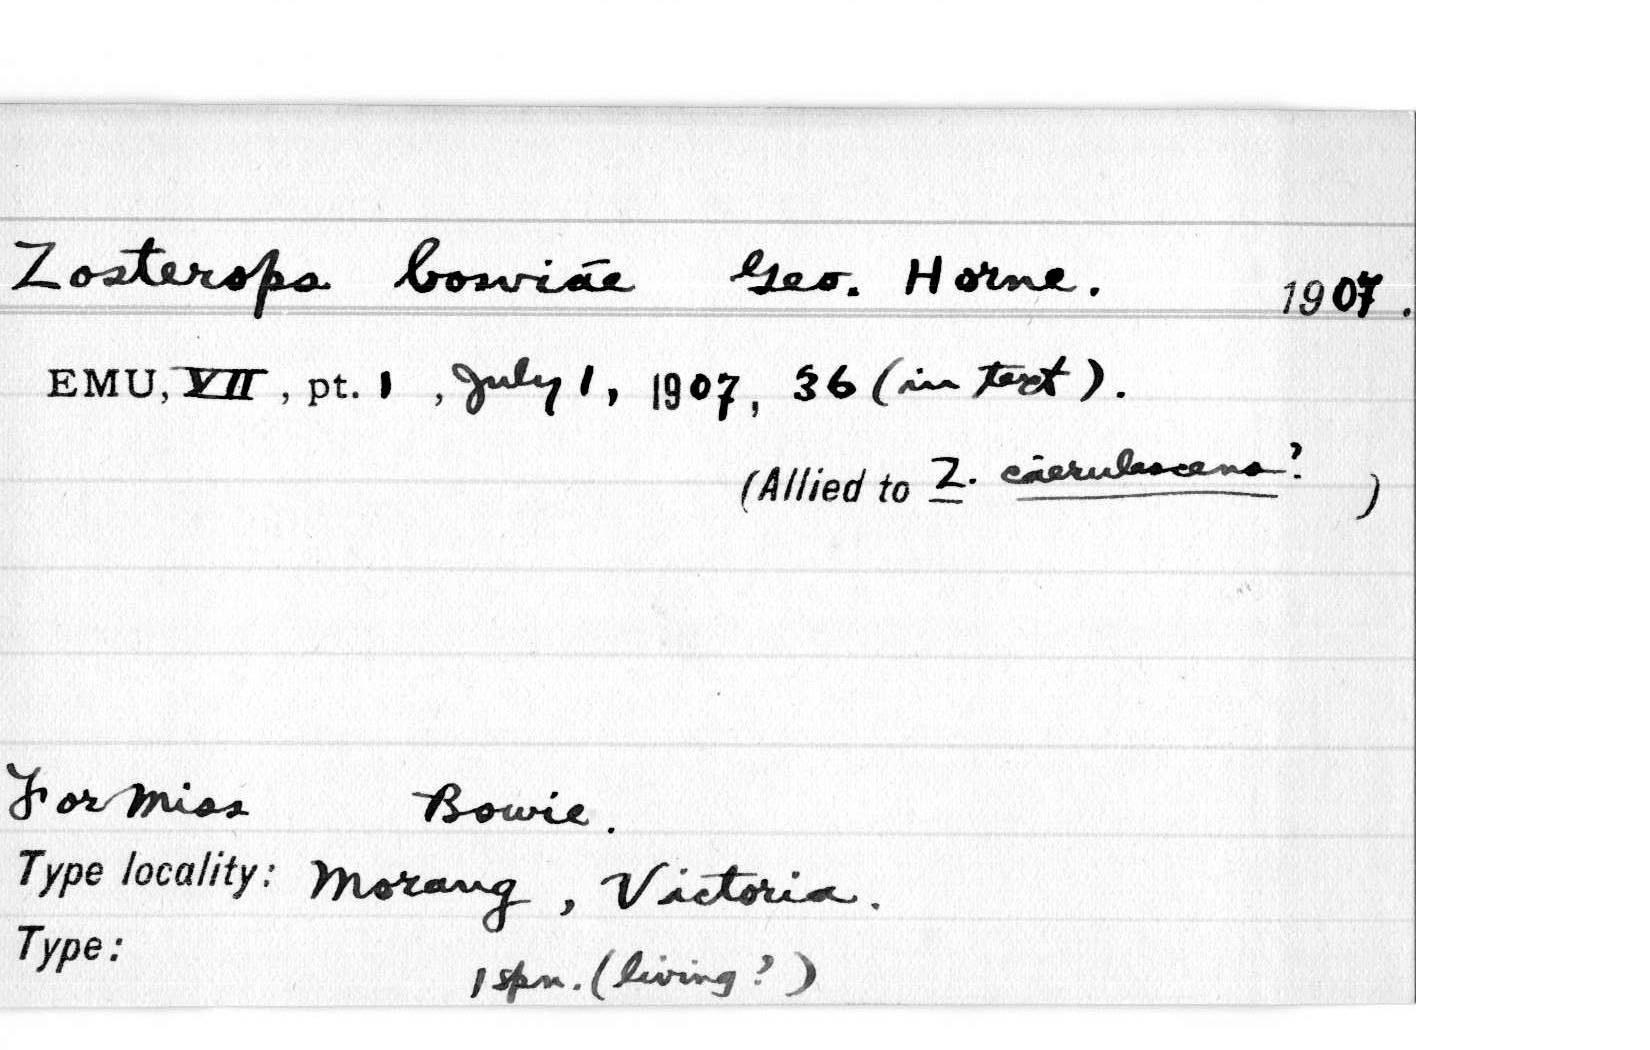 Zosterops bowiae Geo. Horne. 1907.
EMU, VII, pt. 1, July 1, 1907, 36 (in text).
(Allied to Z. caerulescens? )
For Miss Bowie.
Type locality: Morang, Victoria.
Type:
1 spn. (living?)